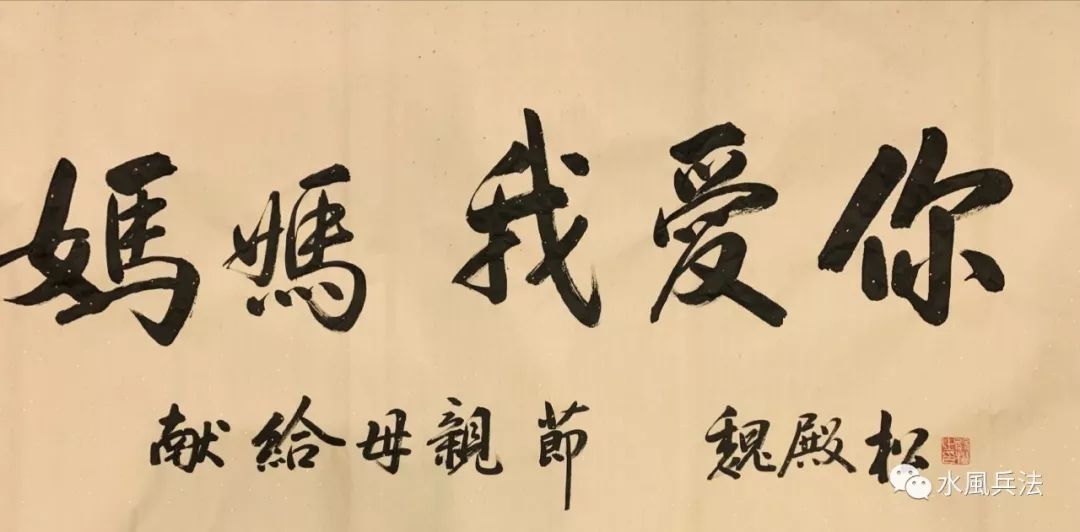 媽媽 我爱你
献给母親節 魏殿松
水風兵法